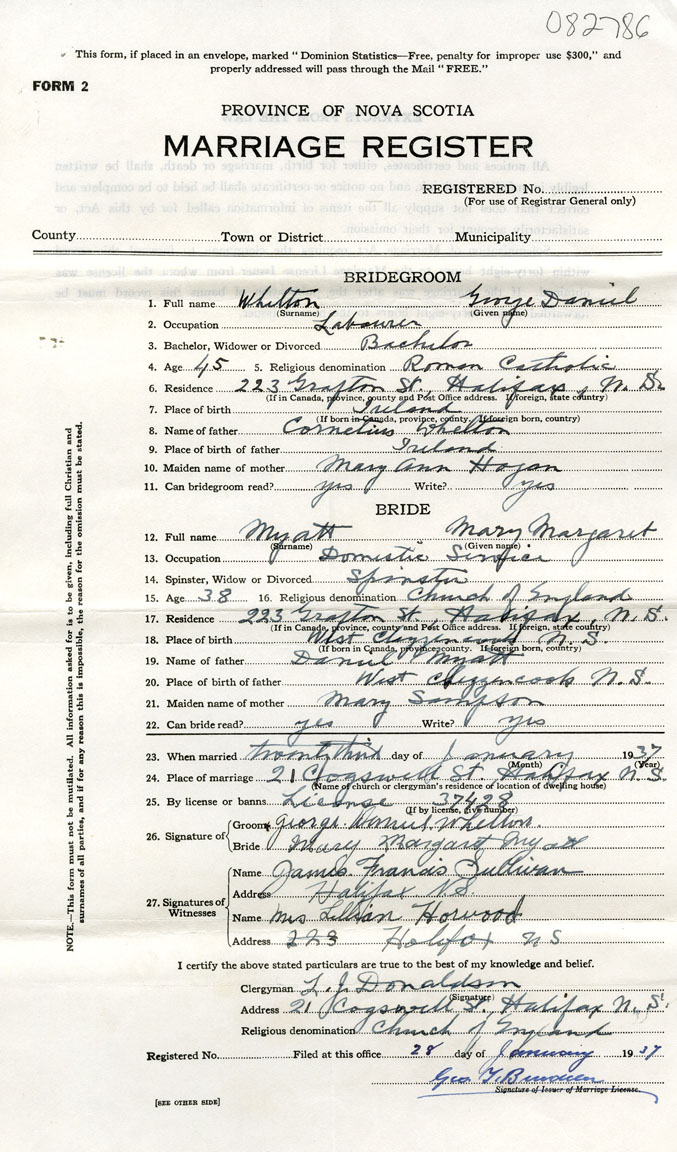 082786
This form, if placed in an envelope, marked "Dominion Statistics—Free, penalty for improper use $300," and
properly addressed will pass through the Mail "FREE."
FORM 2
PROVINCE OF NOVA SCOTIA
MARRIAGE REGISTER
REGISTERED No.
(For use of Registrar General only)
County Town or District Municipality
BRIDEGROOM
1. Full name Whelton George Daniel
(Surname) (Given name)
2. Occupation Labourer
3. Bachelor, Widower or Divorced Bachelor
4. Age 45 5. Religious denomination Roman Catholic
6. Residence 223 Grafton St., Halifax, N. S.
(If in Canada, province, county and Post Office address. If foreign, state country)
7. Place of birth Ireland
(If born in Canada, province, county. If foreign born, country)
8. Name of father Cornelius Whelton
9. Place of birth of father Ireland
10. Maiden name of mother Mary Ann Hogan
11. Can bridegroom read? yes Write? yes
BRIDE
12. Full name Myatt Mary Margaret
(Surname) (Given name)
13. Occupation Domestic Service
14. Spinster, Widow or Divorced Spinster
15. Age 38 16. Religious denomination Church of England
17. Residence 223 Grafton St., Halifax, N. S.
(If in Canada, province, county and Post Office address. If foreign, state country)
18. Place of birth West N. S.
(If born in Canada, province, county. If foreign born, country)
19. Name of father Daniel Myatt
20. Place of birth of father West N. S.
21. Maiden name of mother Mary Sampson
22. Can bride read? yes Write? yes
23. When married day of January 1937
(Month) (Year)
24. Place of marriage 21 Cogswell St. Halifax N. S.
(Name of church or clergyman's residence or location of dwelling house)
25. By license or banns License 37428
(If by license, give number)
26. Signature of Groom George Daniel Whelton.
Bride Mary Margaret Myatt
27. Signatures of Witnesses Name James Francis Sullivan
Address Halifax NS
Name Mrs Lillian Horwood
Address 223 Halifax N S
I certify the above stated particulars are true to the best of my knowledge and belief.
Clergyman L. J. Donaldson
(Signature)
Address 21 Cogswell St. Halifax N. S.
Religious denomination Church of England
Registered No. Filed at this office 28 day of January 1937
Geo
Signature of Issuer of Marriage License.
[SEE OTHER SIDE]
NOTE.—This form must not be mutilated. All information asked for is to be given, including full Christian and
surnames of all parties, and if for any reason this is impossible, the reason for the omission must be stated.